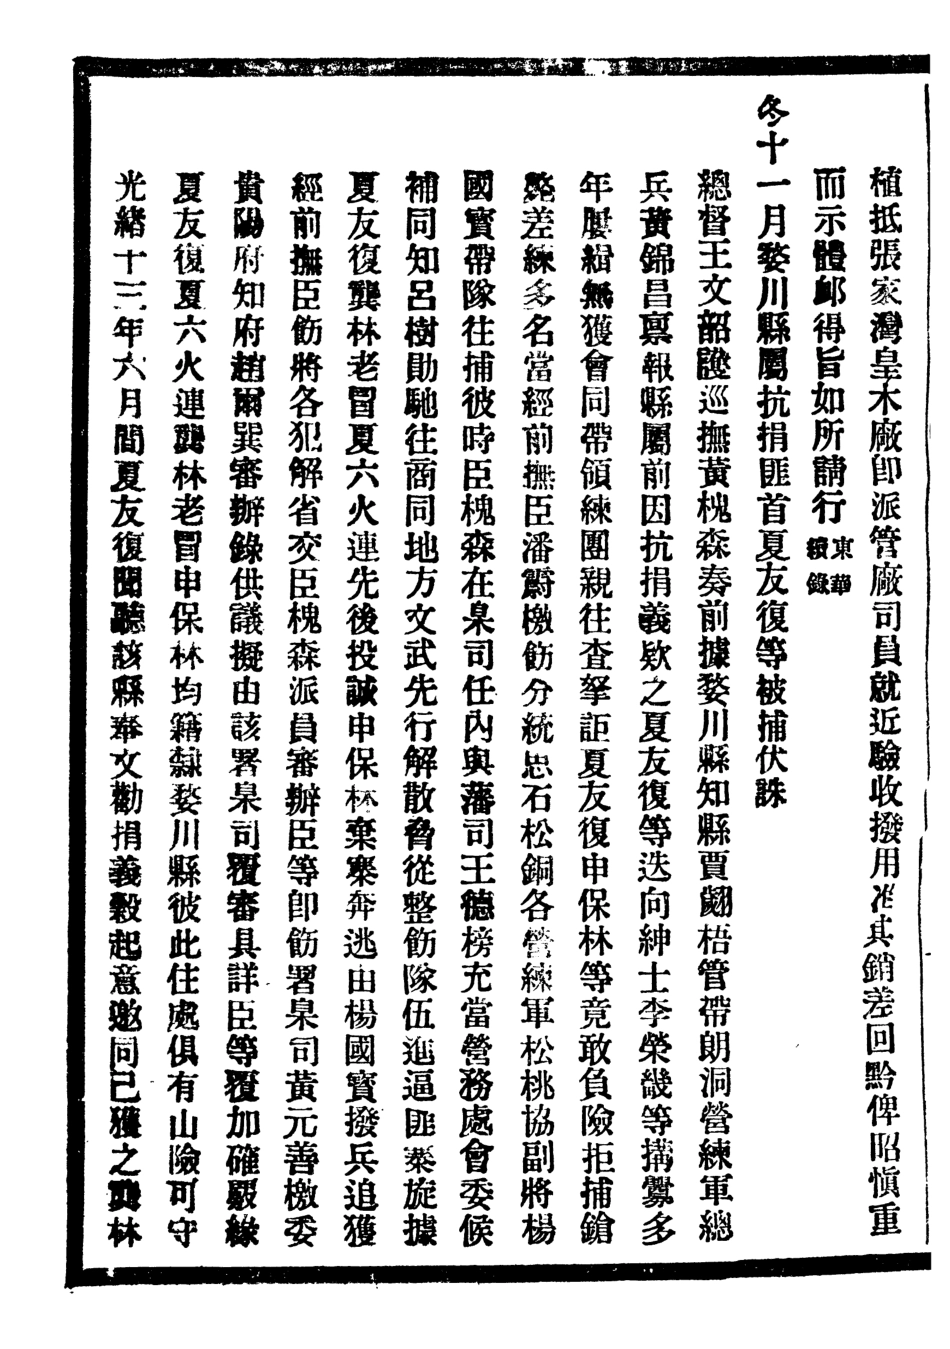 植抵張家灣皇木廠卽派管廠司員就近驗收撥用准其銷差回黔俾昭愼重
而示體卹得旨如所請行東華續錄
冬十一月婺川縣屬抗捐匪首夏友復等被捕伏誅
總督王文韶護巡撫黃槐森奏前據婺川縣知縣賈翽梧管帶朗洞營練軍總
兵黃錦昌禀報縣屬前因抗捐義欵之夏友復等迭向紳士李榮畿等搆釁多
年屢緝無獲會同帶領練團親往查拏詎夏友復申保林等竟敢負險拒捕鎗
斃差練多名當經前撫臣潘霨檄飭分統忠石松銅各營練軍松桃協副將楊
國寶帶隊往捕彼時臣槐森在臬司任內與藩司王德榜充當營務處會委候
補同知呂樹勛馳往商同地方文武先行解散脅從整飭隊伍進逼匪寨旋據
夏友復龔林老冒夏六火連先後投誠申保林棄寨奔逃由楊國寶撥兵追獲
經前撫臣飭將各犯解省交臣槐森派員審辦臣等卽飭署臬司黃元善檄委
貴陽府知府趙爾巽審辦錄供議擬由該署臬司覆審具詳臣等覆加確覈緣
夏友復夏六火連龔林老冒申保林均籍隸婺川縣彼此住處俱有山險可守
光緒十三年六月間夏友復聞聽該縣奉文勸捐義穀起意邀同已獲之龔林